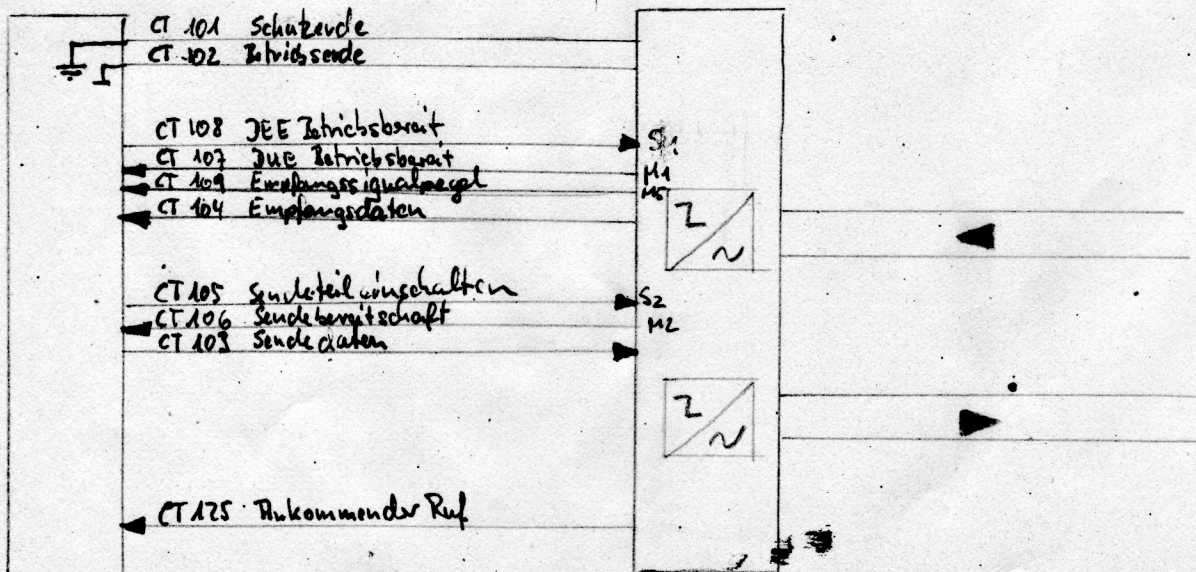 CT 101 Schutzerde
CT 102 Betriebserde
CT 108 DEE Betriebsbereit
S1
CT 107 DUE Betriebsbereit
M1
CT 109 Empfangssignalpegel
M5
CT 104 Empfangsdaten
CT 105 Sendeteil einschalten
S2
CT 106 Sendebereitschaft
M2
CT 103 Sendedaten
CT 125 Ankommender Ruf